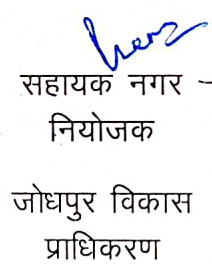 सहायक नगर -
नियोजक
जोधपुर विकास
प्राधिकरण